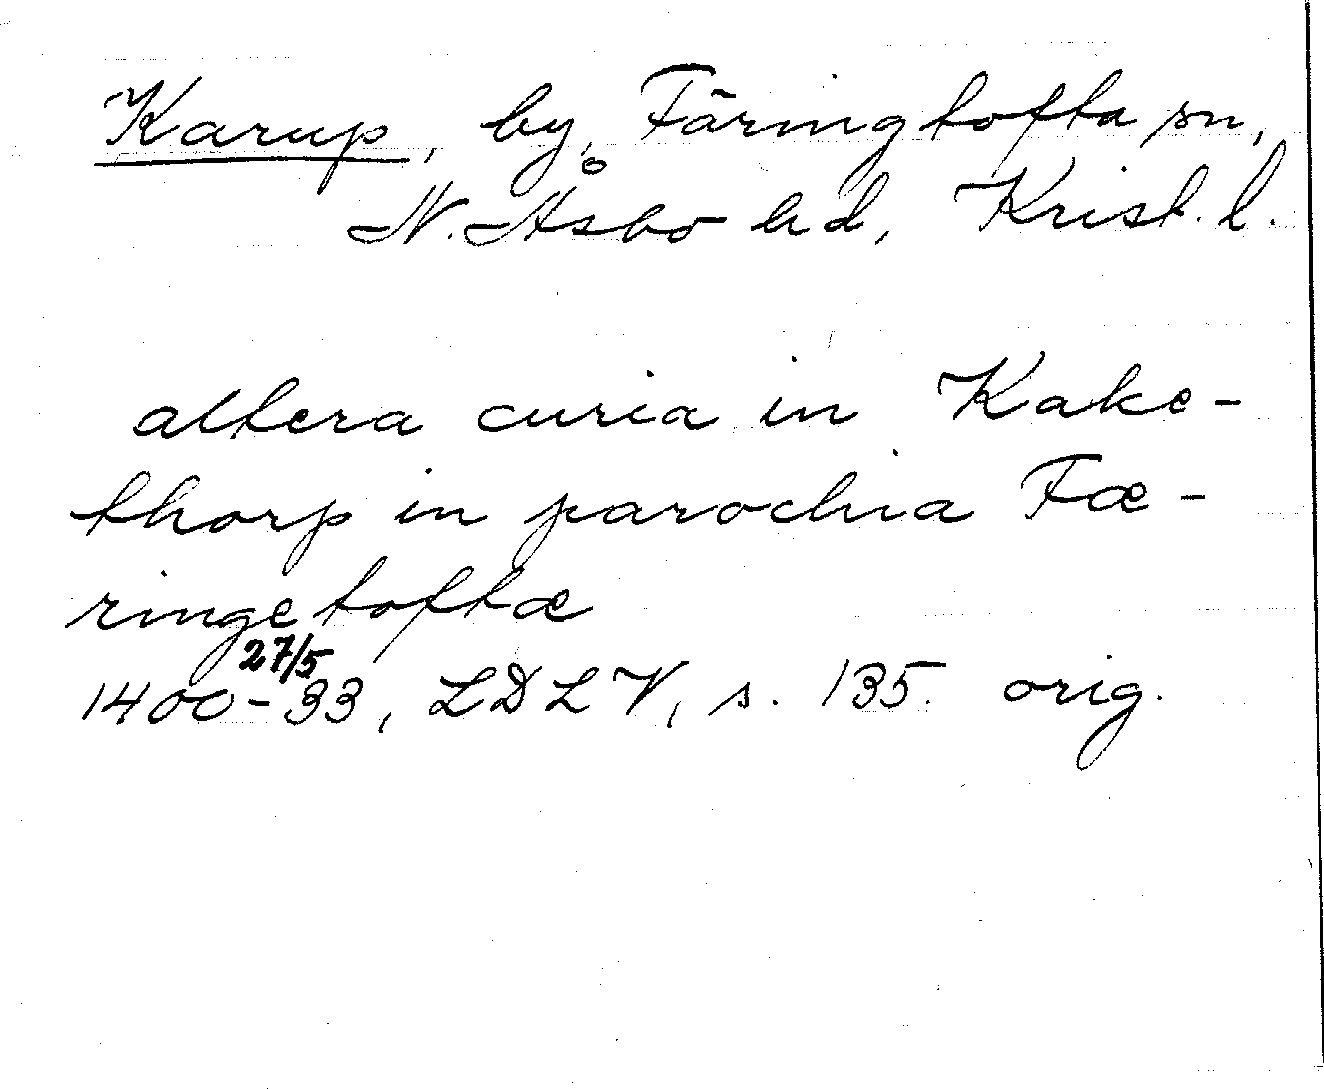 Karup, by, Färingtofta sn,
N. Åsbo hd, Krist. l.
altera curia in Kake-
thorp in parochia Fæ-
ringetoftæ
27/5
1400-33, LDLV, s. 135. orig.